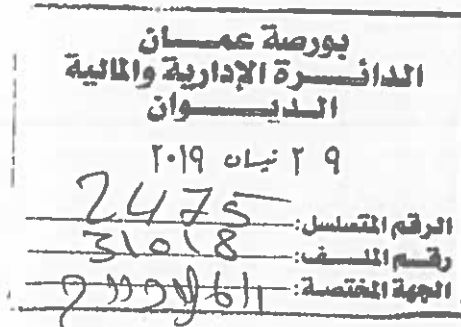 بورصة عمـــان
الدائـــرة الإدارية والمالية
الـديـــــوان
٢ ٩ نيسان ٢٠١٩
الرقم المتسلسل: 2475
رقـم الملـــف: 31018
الجهة المختصة: